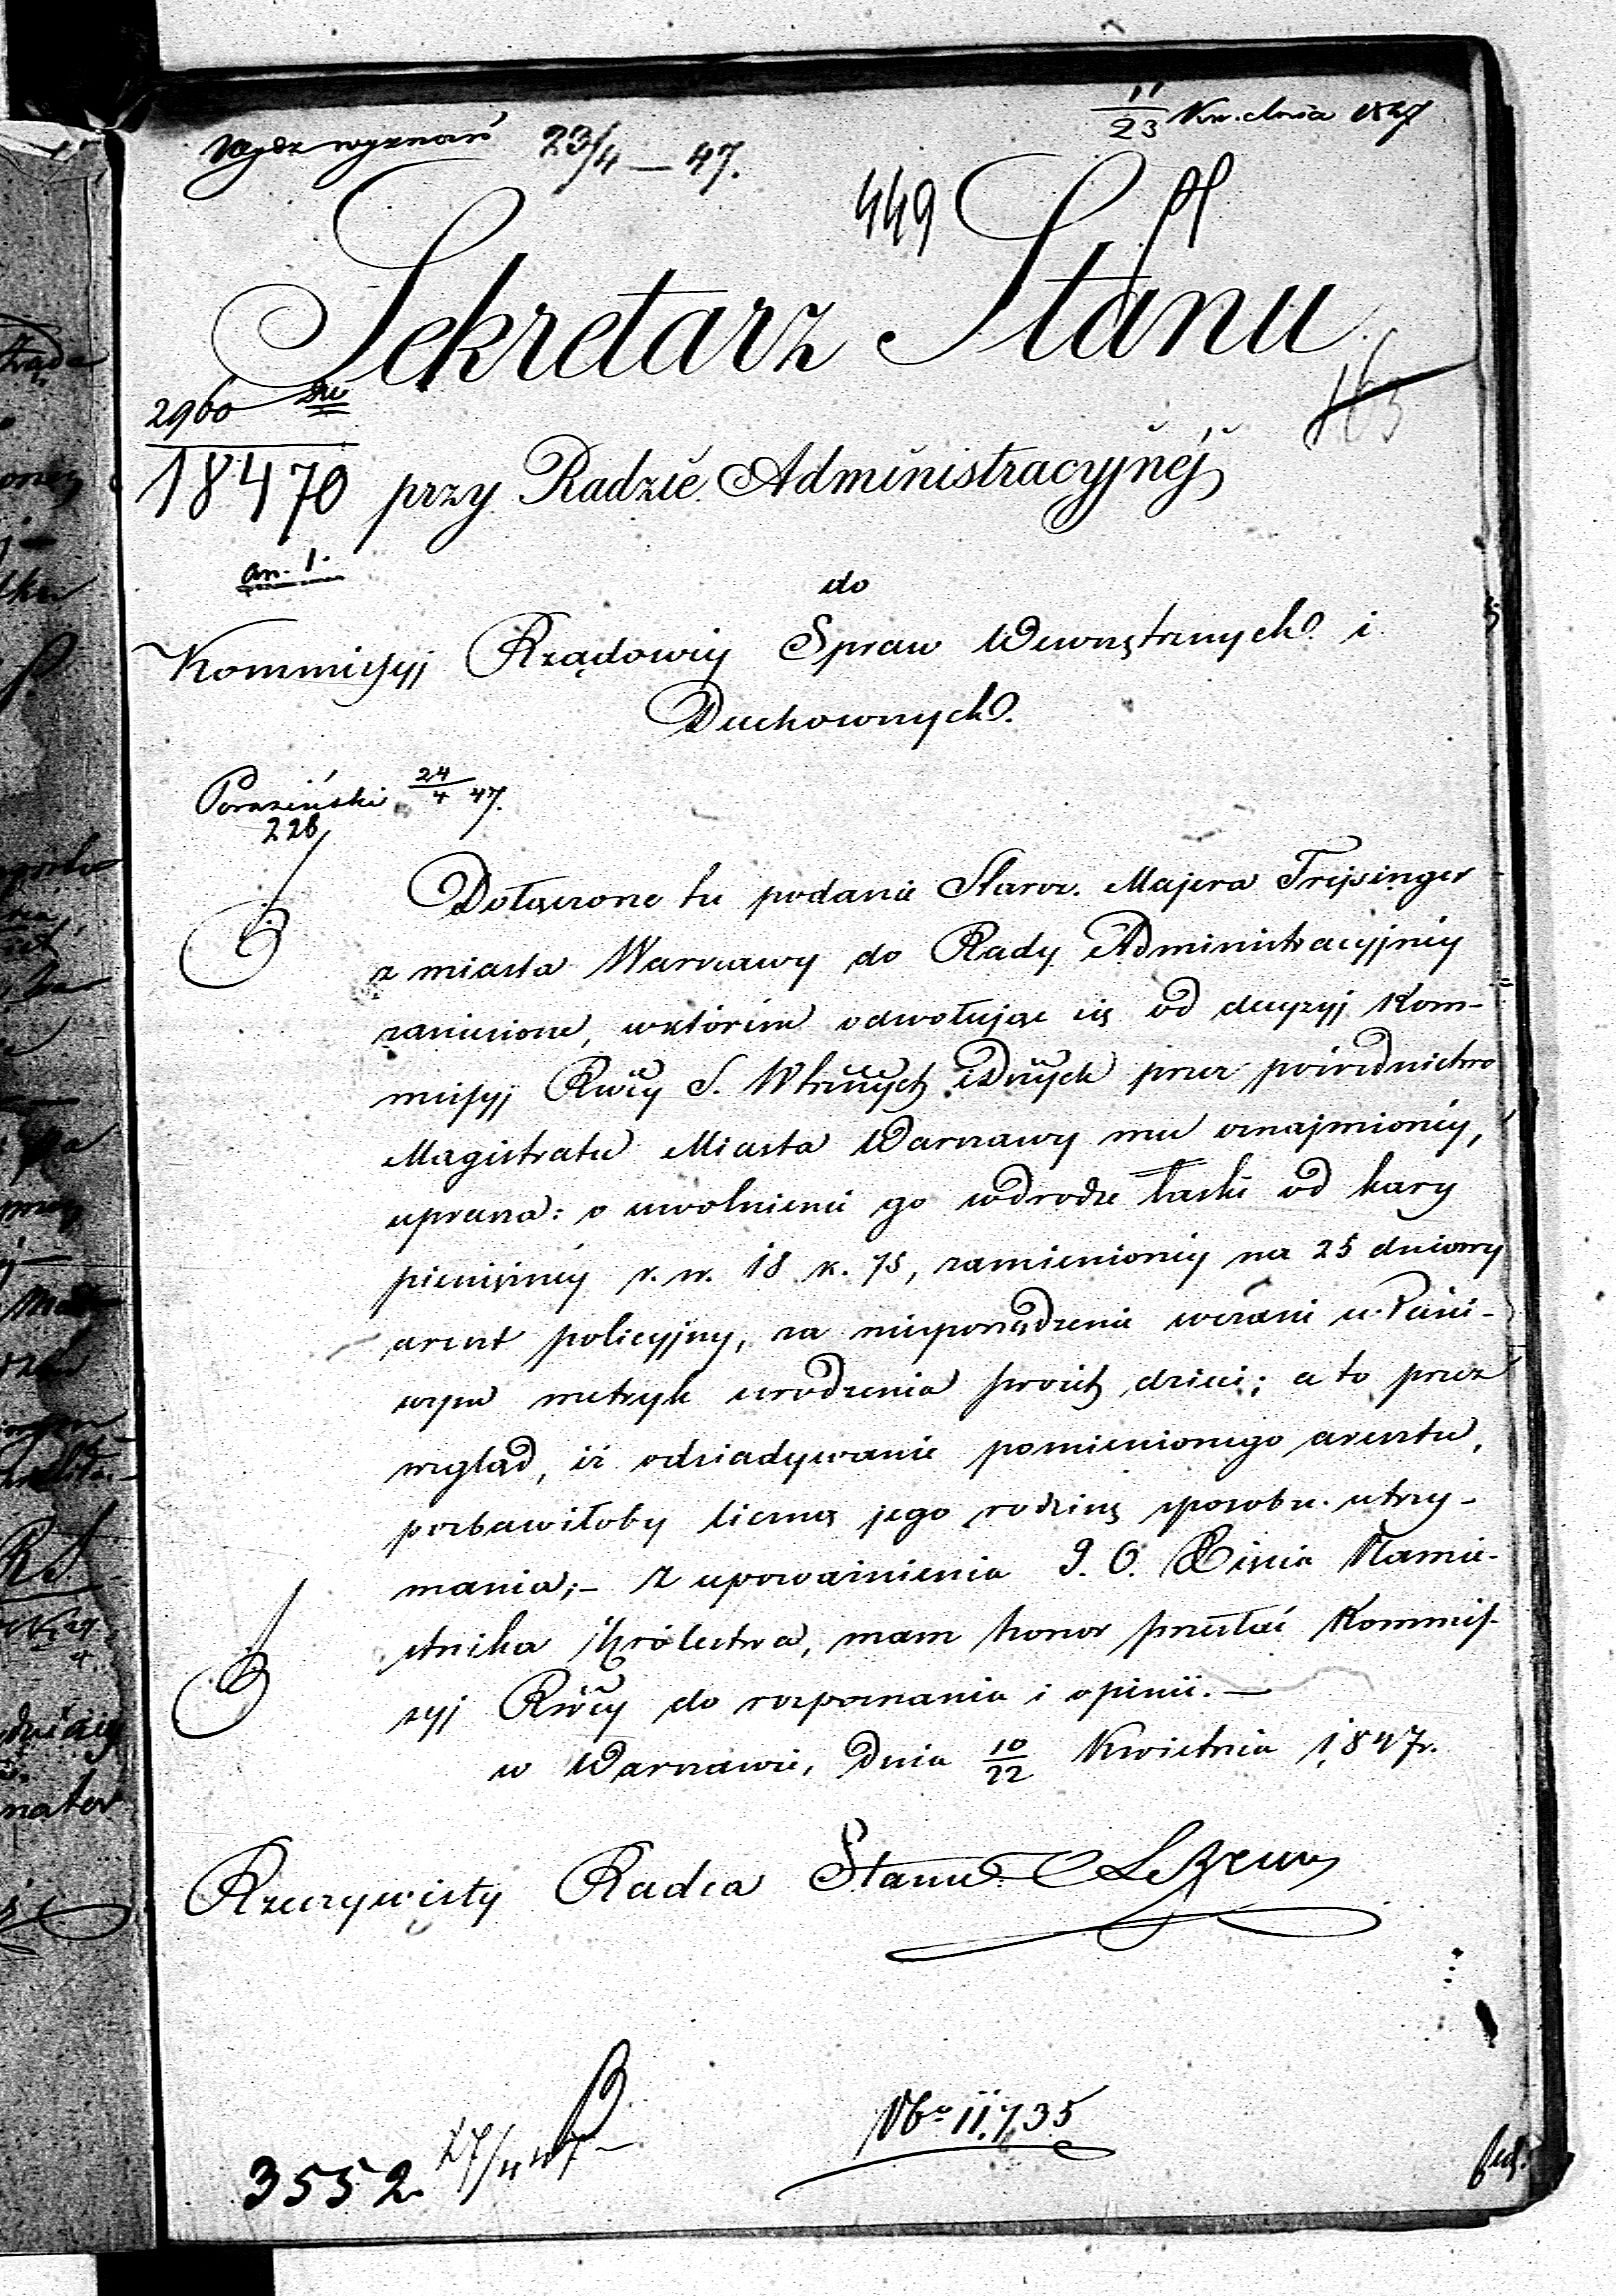 Wydz wyznań 23/4 – 47.
11/23 Kwietnia 1847
449
Sekretarz Stanu
163
2960
18470 przy Radzie Administracyjnéj
an. 1.
do
Kommissyj Rządowéy Spraw Wewnętrznych i
Duchownych.
24/4 47.
228
Dołączone tu podanie Staroz. Majera Frejsinger
z miasta Warszawy do Rady Administracyjnéy
zaniesione, wktórém odwołując się od decyzyj Kom-
missyj Rwéy S. Wtrznych i Dnych przez pośrednictwo
Magistratu Miasta Warszawy mu oznajmionéy,
uprasza: o uwolnienie go wdrodze łaski od kary
pieniężnéy r. sr. 18 k. 75, zamienionéy na 25 dniowy
areszt policyjny, za niesporządzenie wczasie właści-
wym metryk urodzenia swoich dzieci; a to przez
wzgląd, iż odsiadywanie pomienionego aresztu,
pozbawiłoby liczną jego rodzinę sposobu utrzy-
mania;– Z upoważnienia J. O. Xięcia Namie-
stnika Królestwa, mam honor przesłać Kommis-
syj Rwéy do rozpoznania i opinii.–
w Warszawie, dnia 10/22 Kwietnia 1847r.
Rzeczywisty Radca Stanu
No 11,735
3552 27/4 47